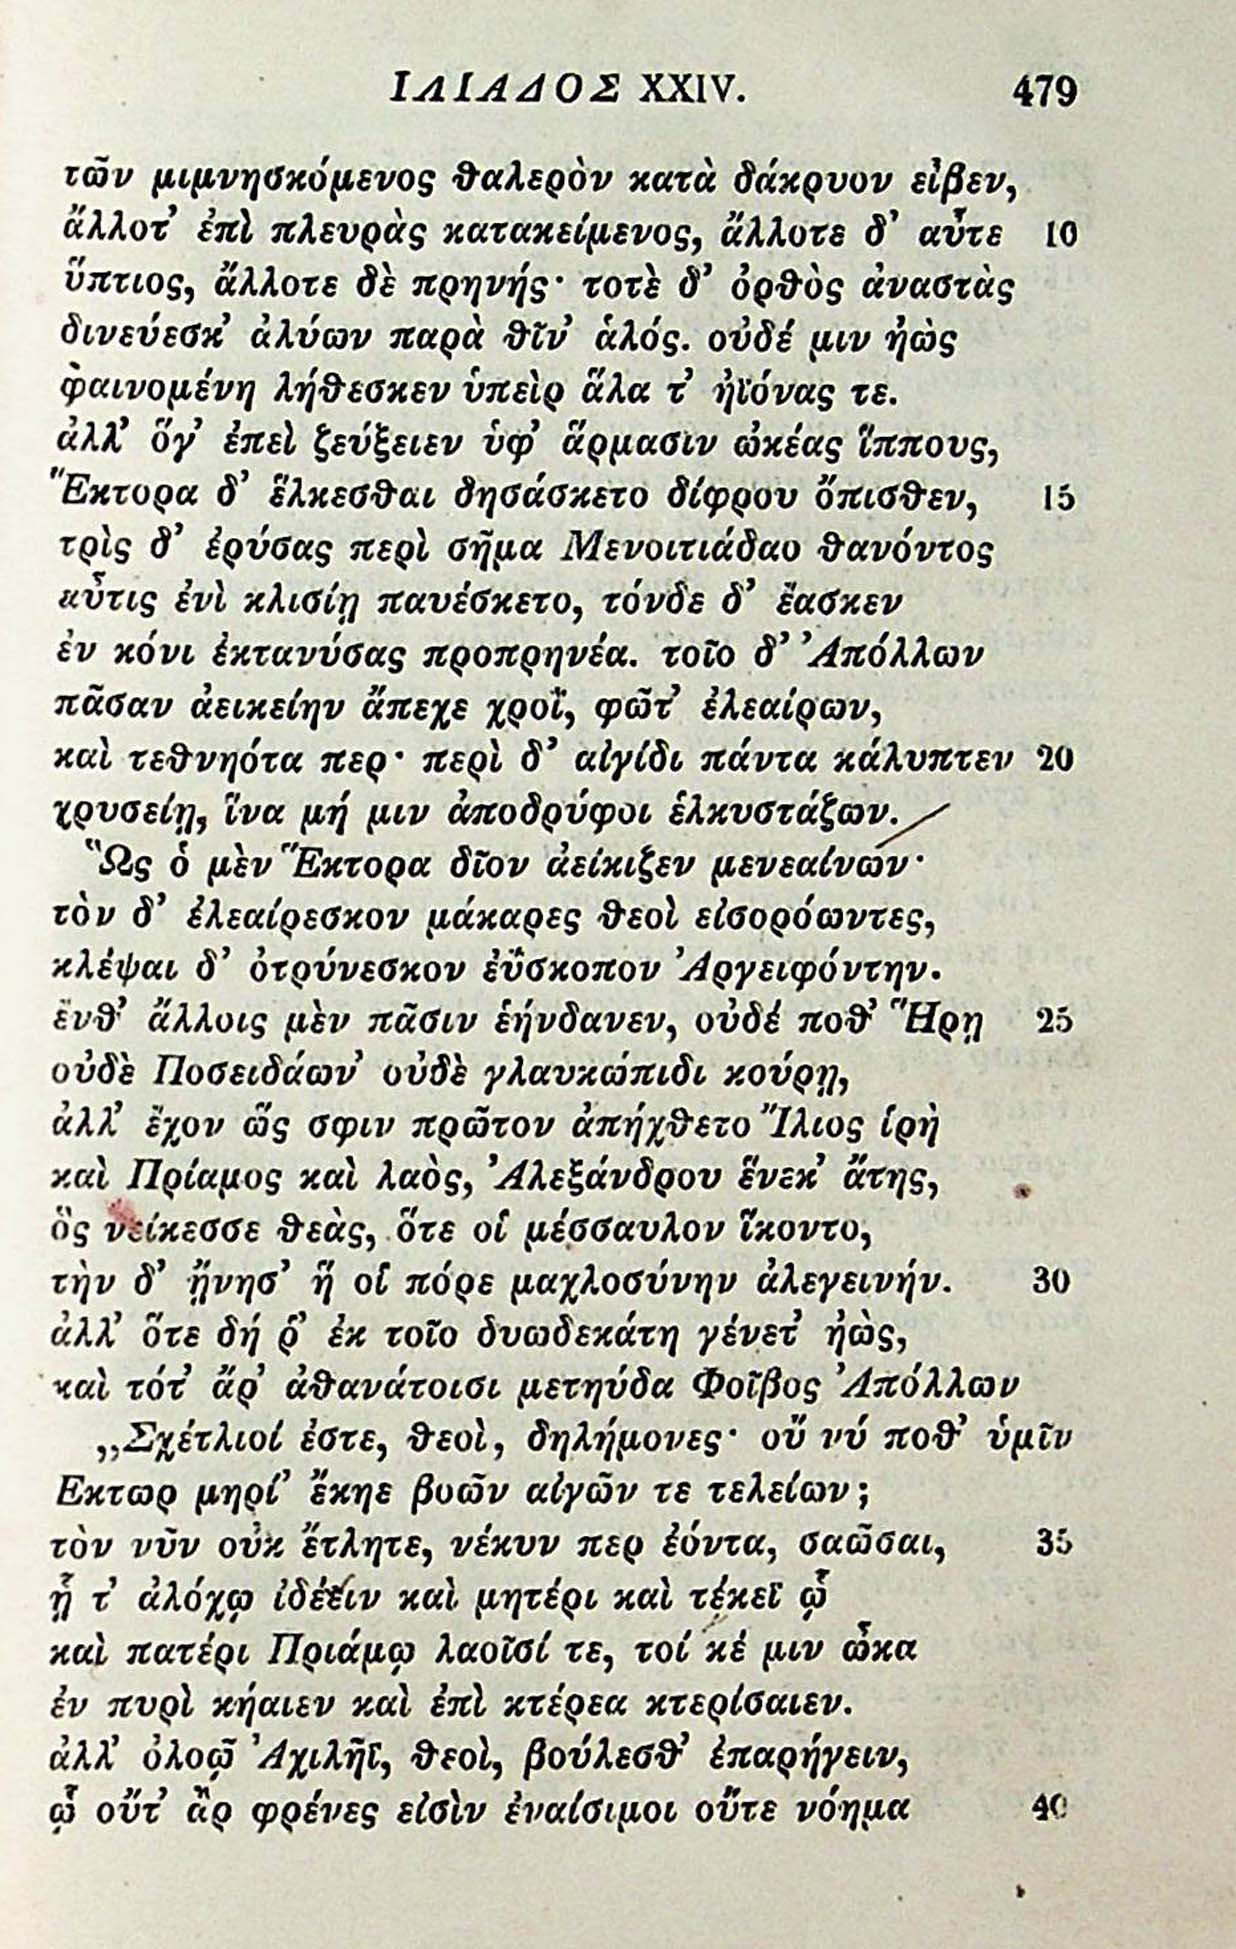 ΙΛΙΑΔΟΣ XXIV. 479
τῶν μιμνησκόμενος θαλερὸν κατὰ δάκρυον εἶβεν,
ἄλλοτ’ ἐπὶ πλευρὰς κατακείμενος, ἄλλοτε δ’ αὖτε 10
ὕπτιος, ἄλλοτε δὲ πρηνής· τοτὲ δ’ ὀρθὸς ἀναστὰς
δινεύεσκ’ ἀλύων παρὰ θῖν’ ἁλός. οὐδέ μιν ἠὼς
φαινομένη λήθεσκεν ὑπεὶρ ἅλα τ’ ἠϊόνας τε.
ἀλλ’ ὅγ’ ἐπεὶ ζεύξειεν ὑφ’ ἅρμασιν ὠκέας ἵππους,
Ἕκτορα δ’ ἕλκεσθαι δησάσκετο δίφρου ὄπισθεν, 15
τρὶς δ’ ἐρύσας περὶ σῆμα Μενοιτιάδαο θανόντος
αὖτις ἐνὶ κλισίῃ παυέσκετο, τόνδε δ’ ἔασκεν
ἐν κόνι ἐκτανύσας προπρηνέα. τοῖο δ’ Ἀπόλλων
πᾶσαν ἀεικείην ἄπεχε χροΐ, φῶτ’ ἐλεαίρων,
καὶ τεθνηότα περ· περὶ δ’ αἰγίδι πάντα κάλυπτεν 20
χρυσείῃ, ἵνα μή μιν ἀποδρύφοι ἑλκυστάζων.
Ὣς ὁ μὲν Ἕκτορα δῖον ἀείκιζεν μενεαίνων·
τὸν δ’ ἐλεαίρεσκον μάκαρες θεοὶ εἰσορόωντες,
κλέψαι δ’ ὀτρύνεσκον ἐΰσκοπον Ἀργειφόντην.
ἔνθ’ ἄλλοις μὲν πᾶσιν ἑήνδανεν, οὐδέ ποθ’ Ἥρῃ 25
οὐδὲ Ποσειδάων’ οὐδὲ γλαυκώπιδι κούρῃ,
ἀλλ’ ἔχον ὥς σφιν πρῶτον ἀπήχθετο Ἴλιος ἱρὴ
καὶ Πρίαμος καὶ λαὸς, Ἀλεξάνδρου ἕνεκ’ ἄτης,
ὃς νείκεσσε θεὰς, ὅτε οἱ μέσσαυλον ἵκοντο,
τὴν δ’ ᾔνησ’ ἥ οἱ πόρε μαχλοσύνην ἀλεγεινήν. 30
ἀλλ’ ὅτε δή ῥ’ ἐκ τοῖο δυωδεκάτη γένετ’ ἠὼς,
καὶ τότ’ ἄρ’ ἀθανάτοισι μετηύδα Φοῖβος Ἀπόλλων
„Σχέτλιοί ἐστε, θεοὶ, δηλήμονες· οὔ νύ ποθ’ ὑμῖν
Εκτωρ μηρί’ ἔκηε βυῶν αἰγῶν τε τελείων;
τὸν νῦν οὐκ ἔτλητε, νέκυν περ ἐόντα, σαῶσαι, 35
ᾗ τ’ ἀλόχῳ ἰδέειν καὶ μητέρι καὶ τέκεϊ ᾧ
καὶ πατέρι Πριάμῳ λαοῖσί τε, τοί κέ μιν ὦκα
ἐν πυρὶ κήαιεν καὶ ἐπὶ κτέρεα κτερίσαιεν.
ἀλλ’ ὀλοῷ Ἀχιλῆϊ, θεοὶ, βούλεσθ’ ἐπαρήγειν,
ᾧ οὔτ’ ἂρ φρένες εἰσὶν ἐναίσιμοι οὔτε νόημα 40